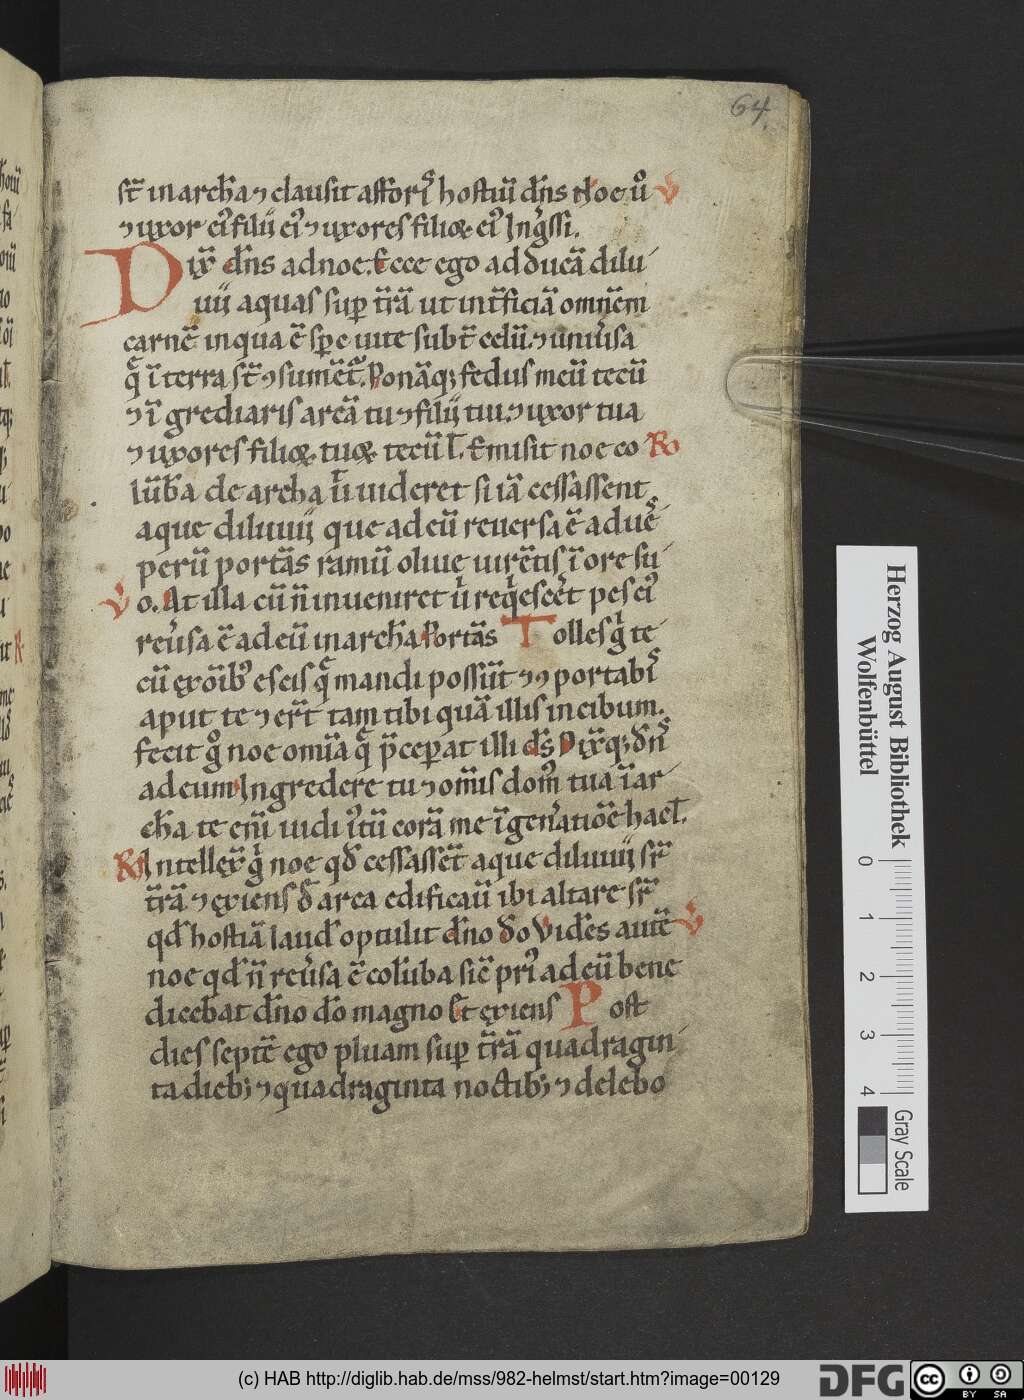 64.
st̄ in archa ⁊ clausit afforis hostiū dn̄s Noe ů V
⁊ uxor eiꝰ filii eiꝰ ⁊ uxores filioꝝ eiꝰ Ingssi.
Dix̄ dn̄s ad noe. Ecce ego adducā dilu
uii aquas suꝑ tr̄ā ut int̄ficiā omnem
carnē in qua ē sp̄c uite subt̄ celū. ⁊ uniūsa
q̄ ī terra st̄ ⁊ sumēt͛. Ponāqꝫ fedus meū tecū
⁊ ī grediaris arcā tu ⁊ filii tui. ⁊ uxor tua
⁊ uxores filioꝝ tuoꝝ tecū l̄. Emisit noe co R
lūb̄a de archa ū uideret si iā cessassent
aque diluuii que ad eū reuersa ē ad ues
perū portās ramū oliue uirētis ī ore su
V o. At illa cū n̄ inueniret ů req̇esc̄et pes eiꝰ
reůsa ē ad eū in archa Portās Tolles g̊ te
cū ex oībꝰ escis q̄ mandi possūt ⁊ portabis
aput te ⁊ er̄t tam tibi quā illis in cibum.
fecit g̊ noe omīa q̄ p̄ceꝑat illi ds̄ Dix̄qꝫ dn̄s
ad eum Ingredere tu ⁊ om̄is domꝰ tua ī ar
cha te eni̅ uidi iꝰtū corā me ī gen̓atiōe hac l̄.
R Intellex̄ g̊ noe qd̄ cessassēt aque diluuii sr̄
tr̄ā ⁊ exiens d̄ arca edificaū ibi altare sr̄
qd̄ hostiā laud̄ optulit dn̄o do Vides autē V
noe qd̄ n̄ reůsa ē colūba sic̄ priꝰ ad eū bene
dicebat dn̄o do magno Et exiens Post
dies septē ego pluam suꝑ tr̄ā quadragin
ta diebꝫ ⁊ quadraginta noctibꝫ ⁊ delebo
Herzog August Bibliothek
Wolfenbüttel
0 1 2 3 4
Gray Scale
(c) HAB http://diglib.hab.de/mss/982-helmst/start.htm?image=00129
DFG
cc BY SA